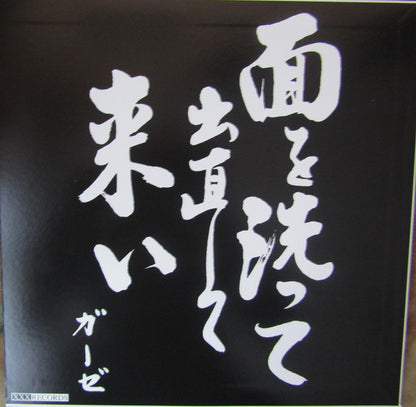 面を洗って
出直して
来い
ガーゼ
XXX RECORDS